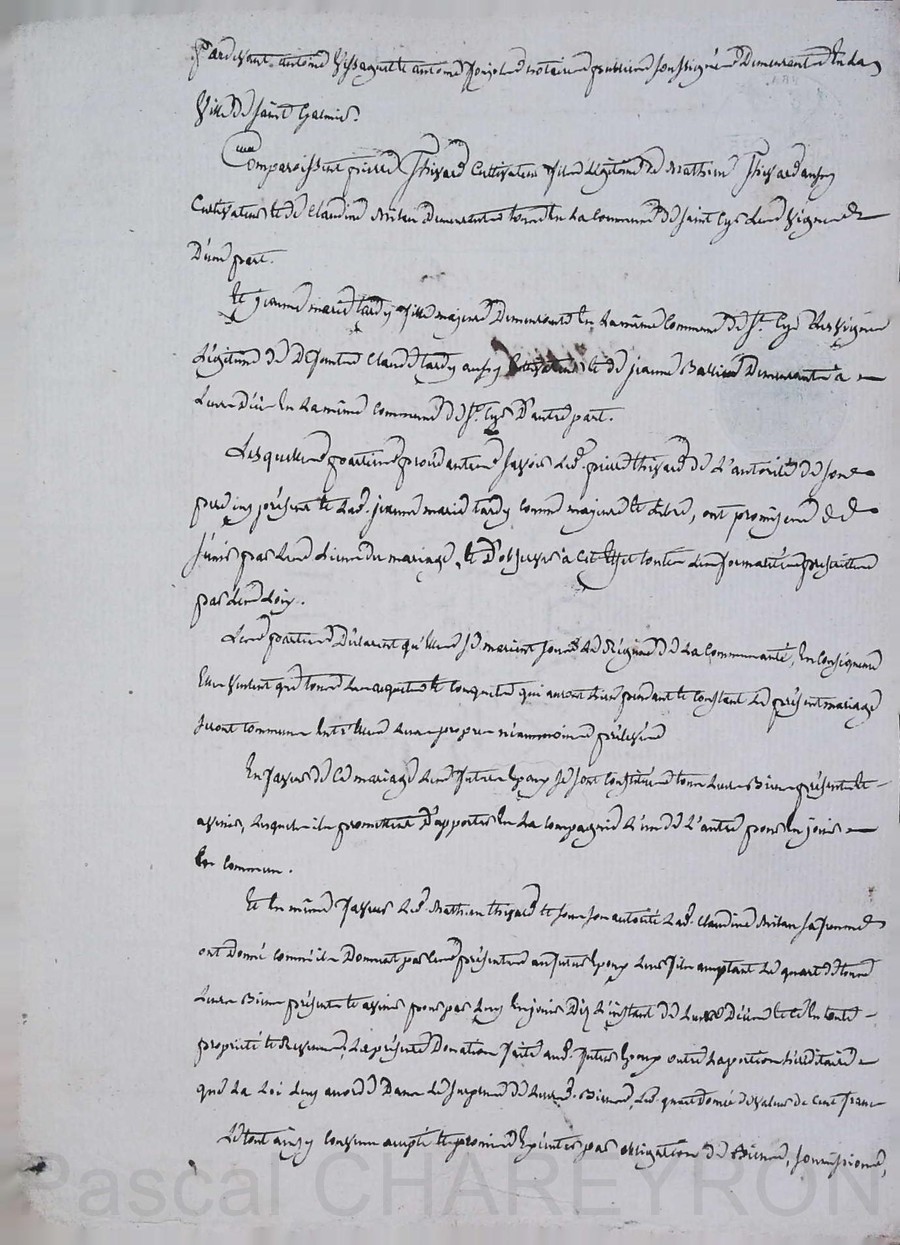 Pardevant antoine Vissaguet et antoine notaires publics soussignés Demeurants En la
Ville de Saint Galmier.
Comparoissent pierre Thivard Cultivateur fils légitime de Mathieu Thivard aussy
Cultivateur et de Claudine Demeurants tous En La Commune de Saint Cyr Les Vignes
D'une part.
Et jeanne marie tardy fille majeure Demeurant En La même Commune de St. Cyr Les Vignes
Légitime de Défunt Claude tardy aussy Cultivateur et de jeanne Demeurante à
En La même Commune de St. Cyr D'autre part.
Lesquelles parties procédantes savoir Led. pierre thivard de L'autorité de son
père icy présent et Lad. jeanne marie tardy comme majeure et Libre, ont promis de
s'unir par Les Liens du mariage, et D'observer à cet Effet toutes Les formalités prescrites
par Les Loix.
Les parties Déclarent qu'Elles se marient sous Le Régime de La Communauté, En Conséquence
Elles Veulent que tous Les acquets et conquets qui auront Lieu pendant et Constant Le présent mariage
seront communs Entr'Elles Leurs propres néanmoins prélevés
En faveur de Ce mariage Les futurs Epoux se sont Constitués tous Leurs Biens présents et
avenir, Lesquels ils promettent D'apporter En La Compagnie L'un de L'autre pour En jouir
En commun.
Et En même faveur Led. Mathieu thivard et sous son autorité Lad. Claudine sa femme
ont Donné comme ils Donnent par Les présentes au futur Epoux Leur fils acceptant Le quart De tous
Leurs Biens présents et avenir pour par Luy En jouir Dez L'instant de Leurs Décès et ce En toute
propriété et Revenus, La présente Donation faite aud. futur Epoux outre La portion héréditaire
que La Loi Luy accorde Dans Le surplus de Leursd. Biens, Led. quart donné de Valeur de Cent francs
Le tout ainsy convenu accepté et promis Exécuter par obligation de Biens, soumissions,
Pascal CHAREYRON